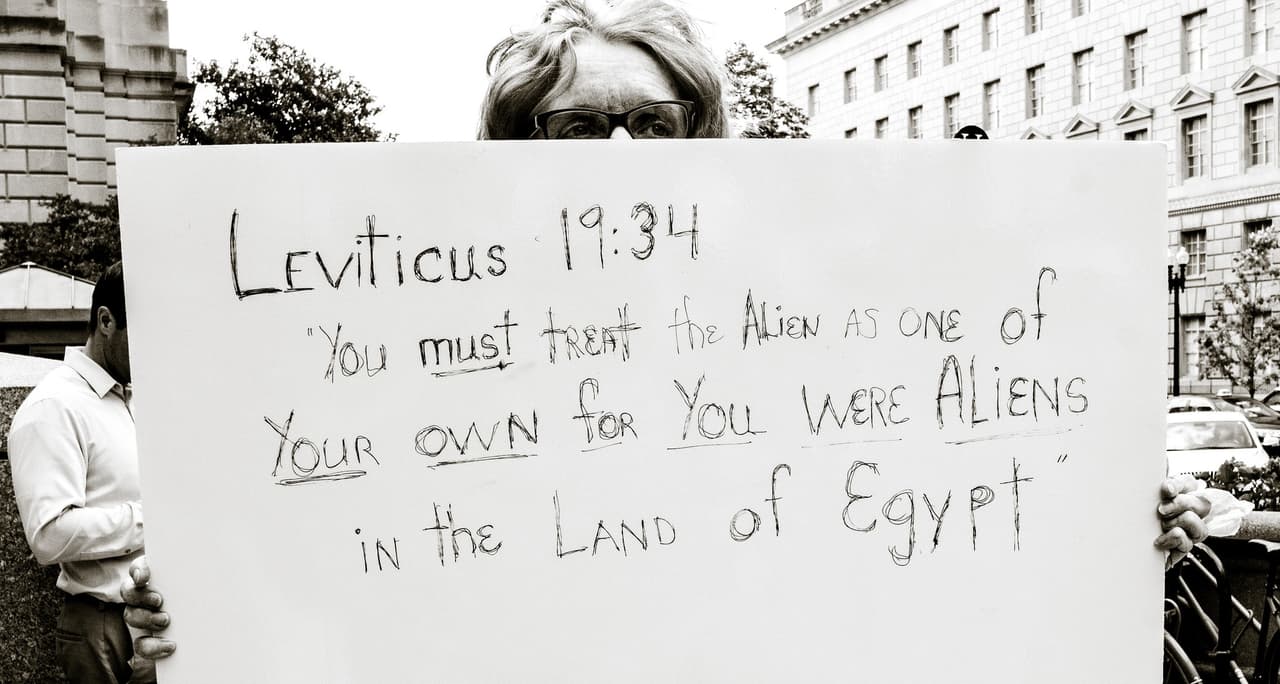 Leviticus 19:34
"You must treat the Alien as one of
Your own for You were Aliens
in the Land of Egypt"